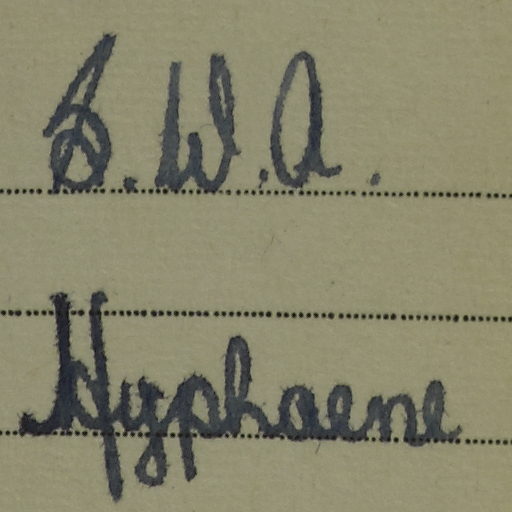 S.W.A.
Hyphaene